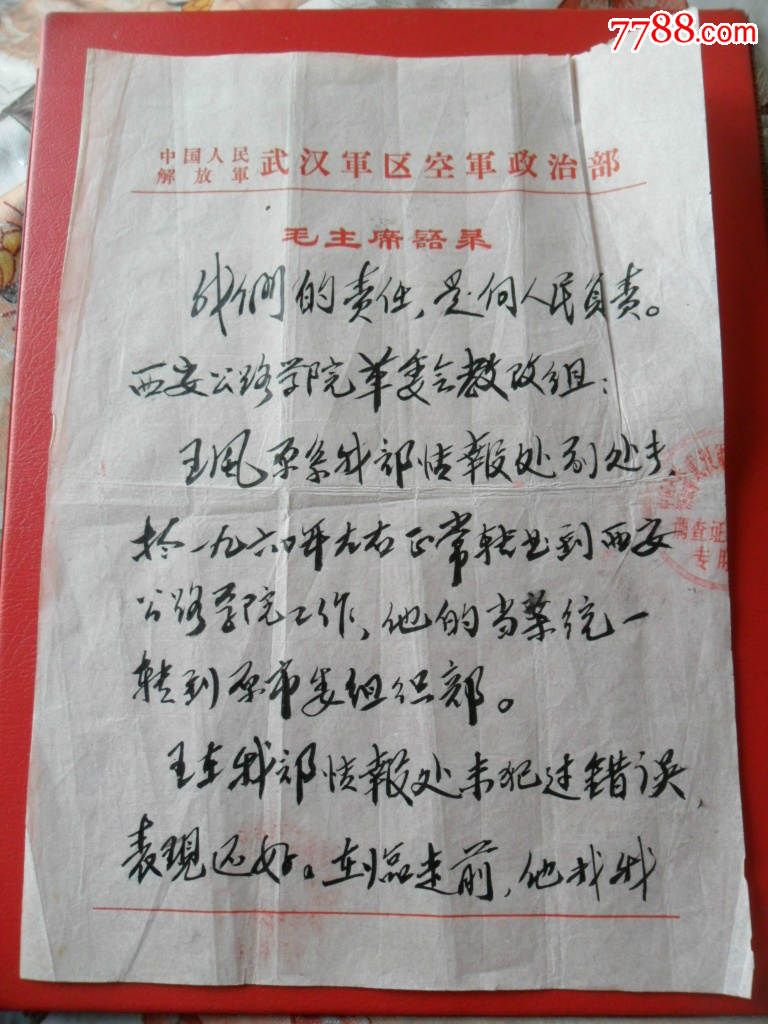 7788.com
中国人民
解放軍 武汉軍区空軍政治部
毛主席語录
我们的责任，是向人民负责。
西安公路学院革委会教改组：
王风原系我部情報处副处长，
於一九六四年左右正常转业到西安
公路学院工作，他的当案统一
转到原市委组织部。
王在我部情報处未犯过错误，
表現还好。在临走前，他找我
调查证
专用